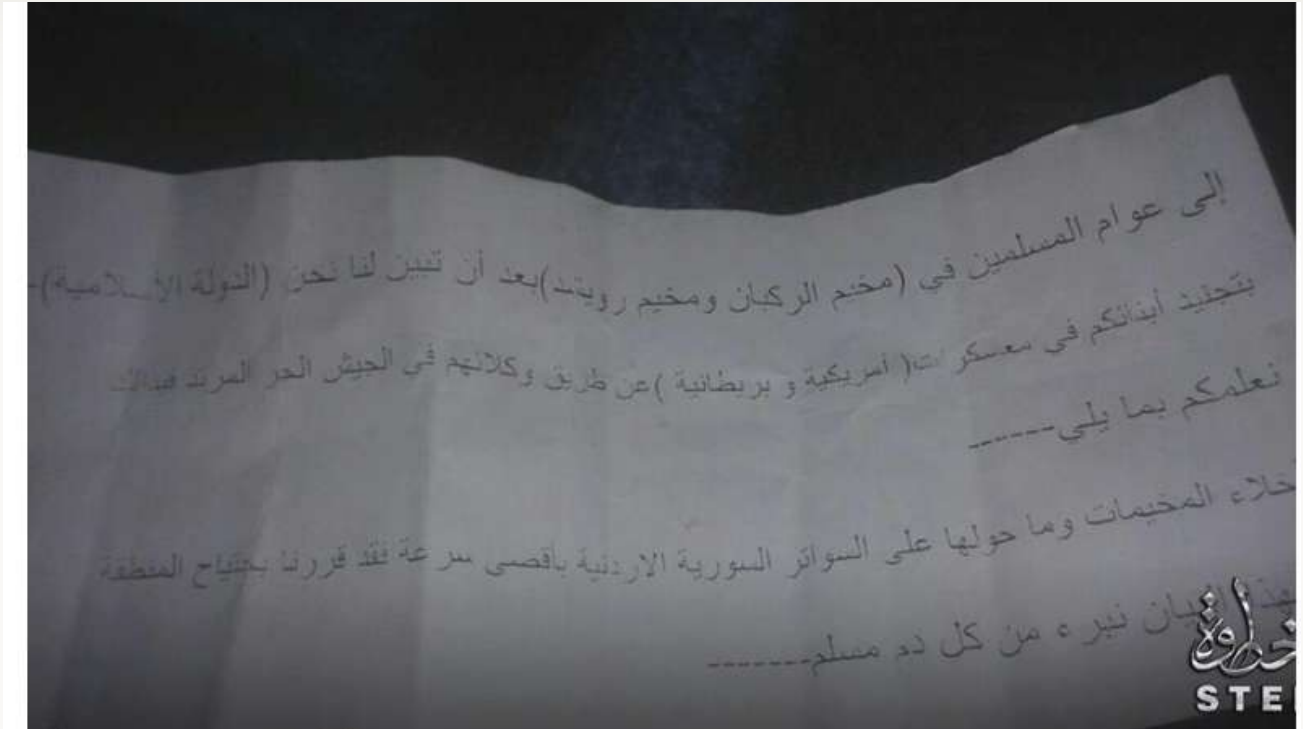 إلى عوام المسلمين في (مخيم الركبان ومخيم رويشد)بعد أن تبين لنا نحن (الدولة الأسلامية)-
بتجنيد أبنائكم في معسكرات( أمريكية و بريطانية )عن طريق وكلائهم في الجيش الحر المرتد
نعلمكم بما يلي------
أخلاء المخيمات وما حولها على السواتر السورية الاردنية بأقصى سرعة فقد قررنا بجتياح المنطقة
بهذا البيان نبرء من كل دم مسلم-------
خطوة
STE